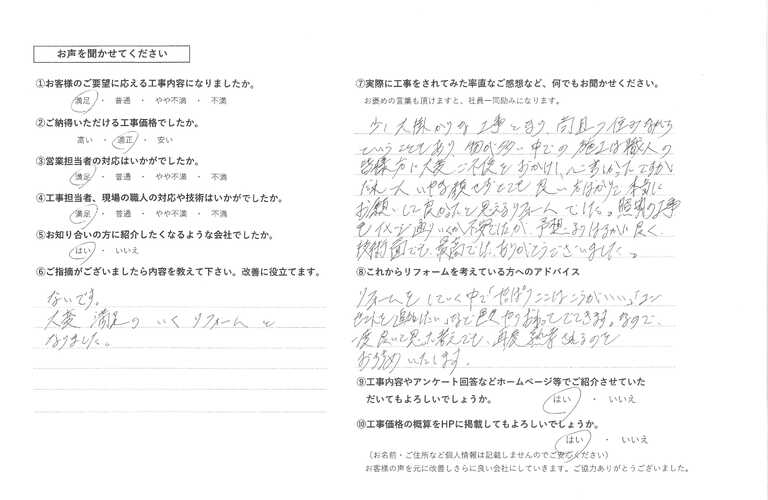 お声を聞かせてください
①お客様のご要望に応える工事内容になりましたか。
満足 ・ 普通 ・ やや不満 ・ 不満
②ご納得いただける工事価格でしたか。
高い ・ 適正 ・ 安い
③営業担当者の対応はいかがでしたか。
満足 ・ 普通 ・ やや不満 ・ 不満
④工事担当者、現場の職人の対応や技術はいかがでしたか。
満足 ・ 普通 ・ やや不満 ・ 不満
⑤お知り合いの方に紹介したくなるような会社でしたか。
はい ・ いいえ
⑥ご指摘がございましたら内容を教えて下さい。改善に役立てます。
ないです。
大変 満足の いく リフォーム と
なりました。
⑦実際に工事をされてみた率直なご感想など、何でもお聞かせください。
お褒めの言葉も頂けますと、社員一同励みになります。
少し大掛かりな工事となり、尚且つ住みながら
ということもあり、物が多い中での施工は職人の
皆様方に大変ご不便をおかけし、心苦しかったですが
だれ一人いやな顔せずとても良い方ばかりで本当に
お願いして良かったと思えるリフォームでした。照明の工事
もイメージ通りいくか不安でしたが、予想よりはるかに良く、
技術面でも最高でした。ありがとうございました。
⑧これからリフォームを考えている方へのアドバイス
リフォームをしていく中で「やっぱりここはこうがいい」「コン
セントを追加したい」など色々やりとりででてきます。なので、
一度良いと思った考えでも、再度熟考されるのを
お勧めいたします。
⑨工事内容やアンケート回答などホームページ等でご紹介させていた
だいてもよろしいでしょうか。 はい ・ いいえ
⑩工事価格の概算をHPに掲載してもよろしいでしょうか。
はい ・ いいえ
(お名前・ご住所など個人情報は記載しませんのでご安心ください)
お客様の声を元に改善しさらに良い会社にしていきます。ご協力ありがとうございました。